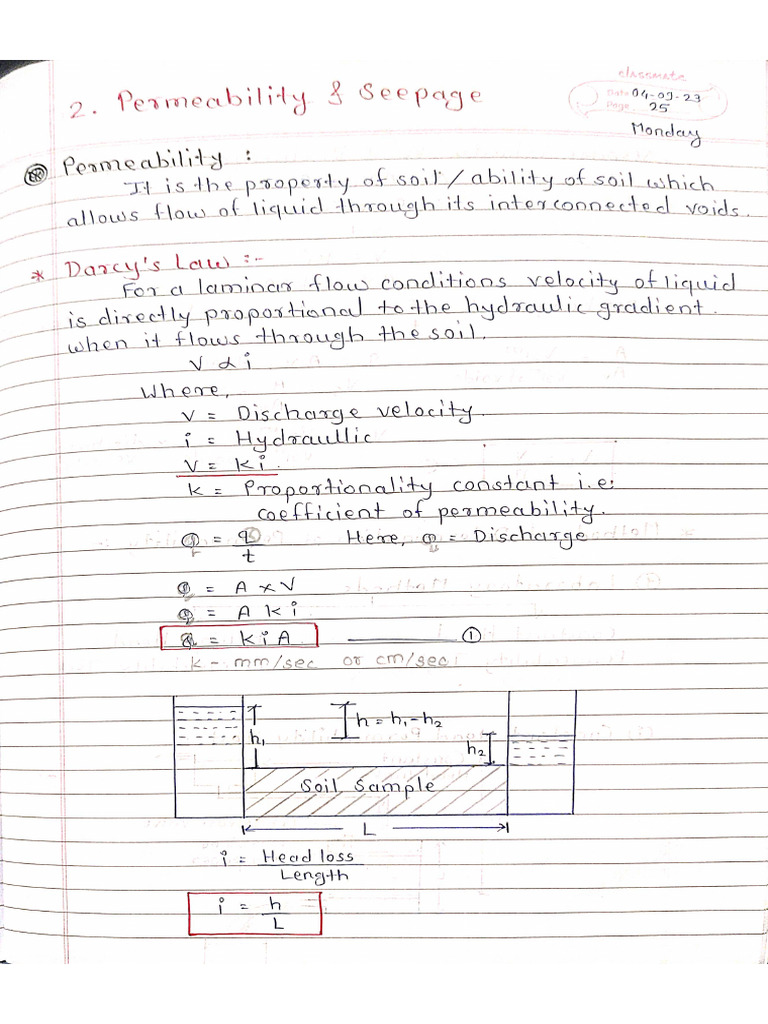 classmate
2. Permeability & Seepage
Date 04-09-23
Page 25
Monday
Permeability :
It is the property of soil / ability of soil which
allows flow of liquid through its interconnected voids.
* Darcy's Law :-
For a laminar flow conditions velocity of liquid
is directly proportional to the hydraulic gradient.
when it flows through the soil.
V α i
Where,
V = Discharge velocity.
i = Hydraullic
V = Ki.
k = Proportionality constant i.e.
coefficient of permeability.
Q = q/t Here, Q = Discharge
Q = A x V
Q = A K i
Q = K i A ——— ①
k - mm/sec or cm/sec.
h₁
h = h₁ - h₂
h₂
Soil Sample
L
i = Head loss
Length
i = h
L